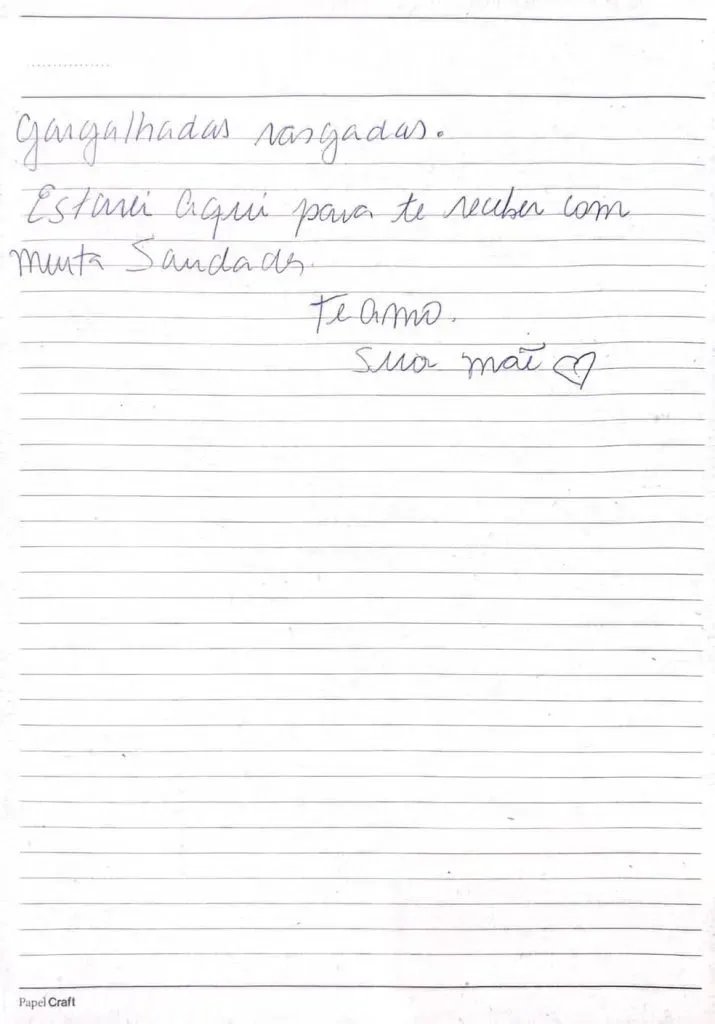 Gargalhadas rasgadas.
Estarei aqui para te receber com
muita Saudades.
Te amo.
Sua mãe ♡
Papel Craft